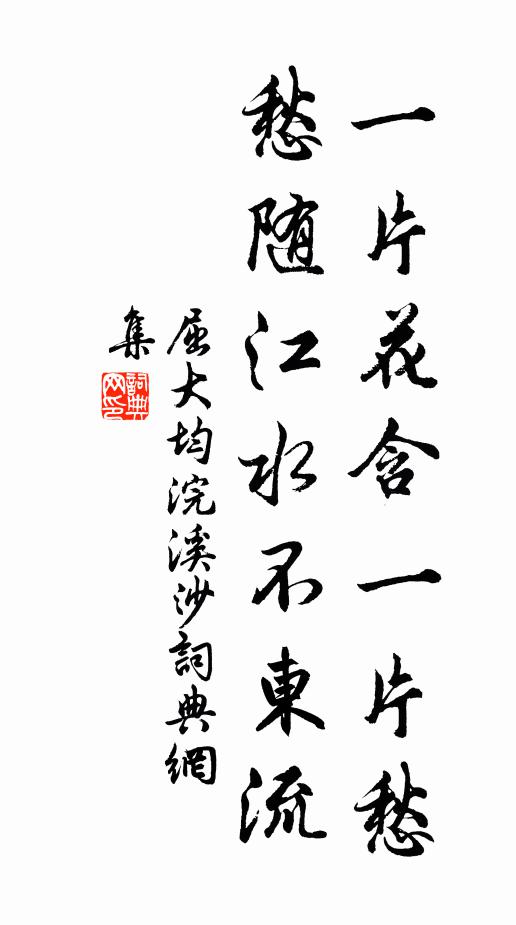 一片花含一片愁
愁随江水不東流
屈大均浣溪沙詞典網
集
詞典网印